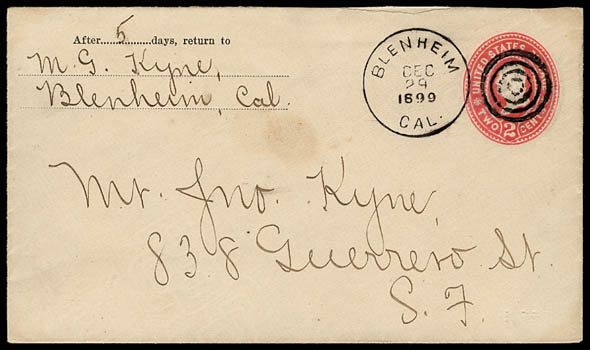 After 5 days, return to
M. G. Kyne,
Blenheim, Cal.
BLENHEIM
DEC
29
1899
CAL.
UNITED STATES
TWO 2 CENTS
Mr. Jno. Kyne,
838 Guerrero St.
S. F.